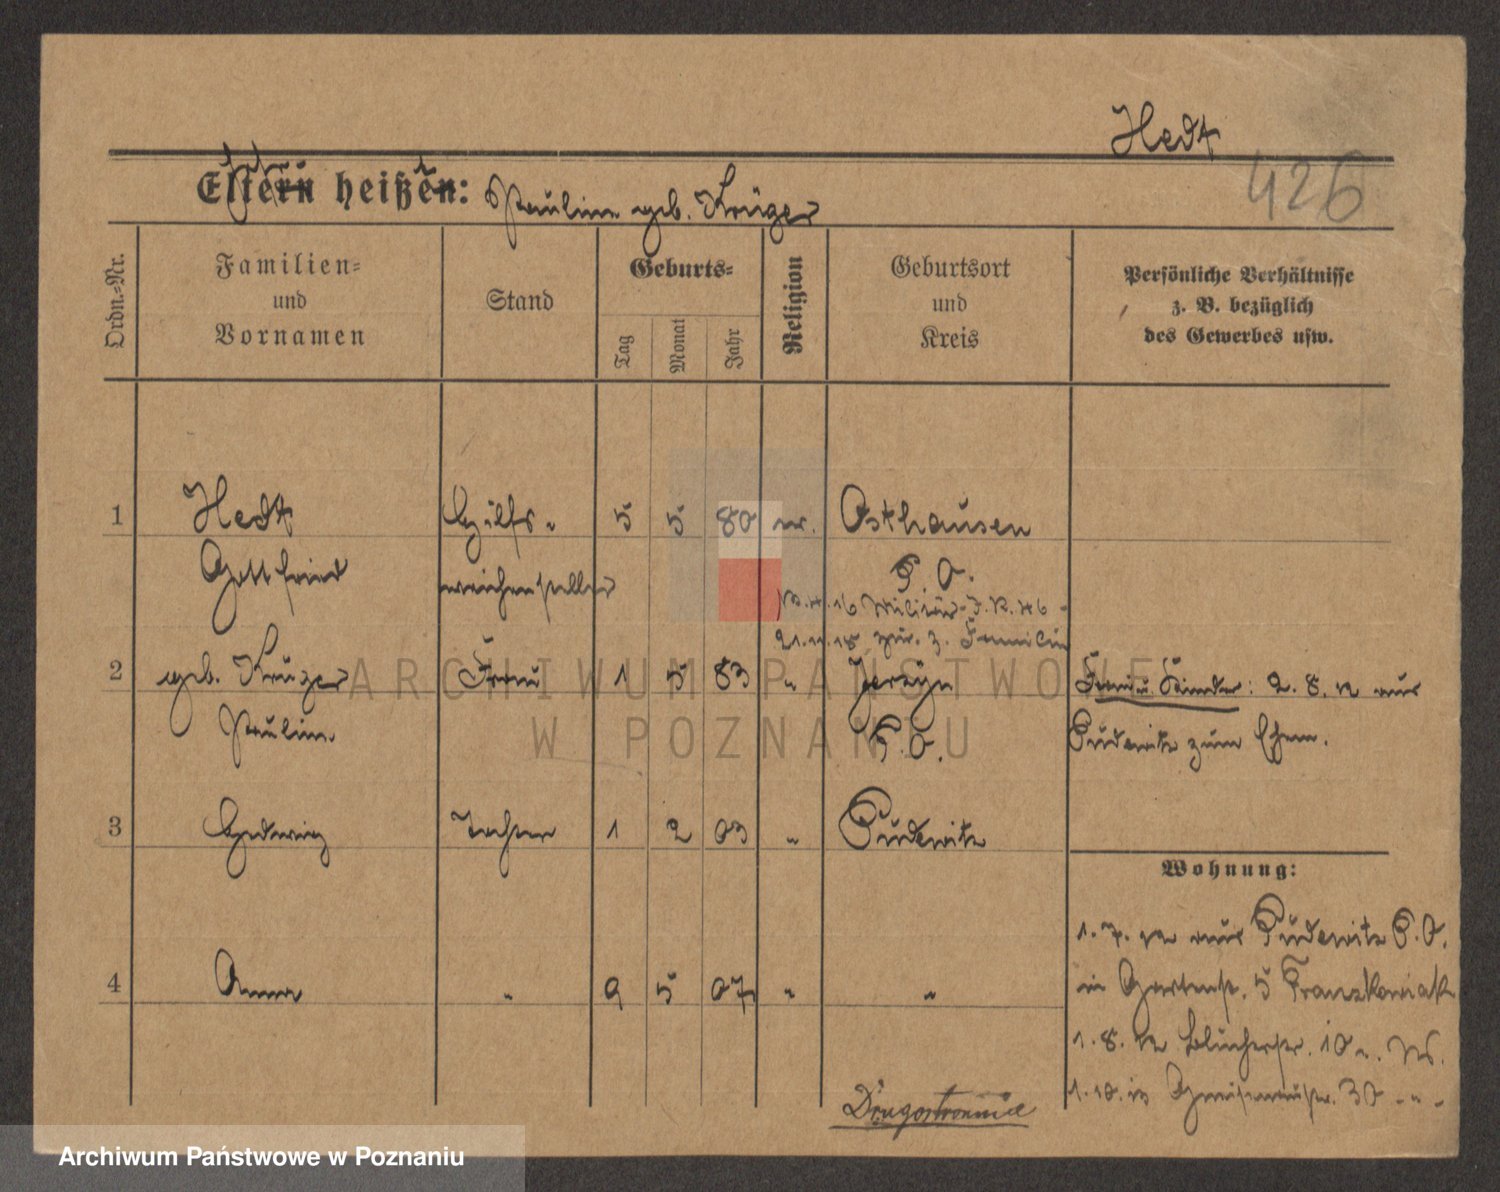 Hedt
426
Eltern heißen: Pauline geb. Krüger
Ordn.-Nr.
Familien-
und
Vornamen
Stand
Geburts-
Tag
Monat
Jahr
Religion
Geburtsort
und
Kreis
Persönliche Verhältnisse
z. B. bezüglich
des Gewerbes usw.
1 Hedt Hilfs- 5 5 80 ev. Osthausen
Gottfried weichensteller P. O.
16 Militär-
21.11.18 zur. z. Familie
2 geb. Krüger Frau 1 5 83 " Jerzyn
Pauline P. O.
Frau u Kinder: 2. 8. 12 aus
Pudewitz zum Ehem.
3 Hedwig Tochter 1 2 03 " Pudewitz
4 Anna " 9 5 07 " "
Wohnung:
1. 7. 12 aus Pudewitz P. O.
in Gartenstr. 5 Franzkowiak
1. 8. 12 Blücherstr. 10
1. 10. Gneisenaustr. 30 - " -
ARCHIWUM PAŃSTWOWE
W POZNANIU
Archiwum Państwowe w Poznaniu